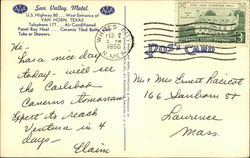 Sun Valley Motel
U.S. Highway 80 . . West Entrance of
VAN HORN, TEXAS
Telephone 177 . . Air-Conditioned
Panel Ray Heat . . . Ceramic Tiled Baths
Tubs or Showers.
AAA
Hi
has a nice day
today - will see
the Carlsbad
Caverns tomorrow
Expect to reach
Ventura in 4
days -
Claim
FEB 2
1950
Post Card
Mr & Mrs Ernest Racicot
166 Sanborn St
Lawrence
Mass.